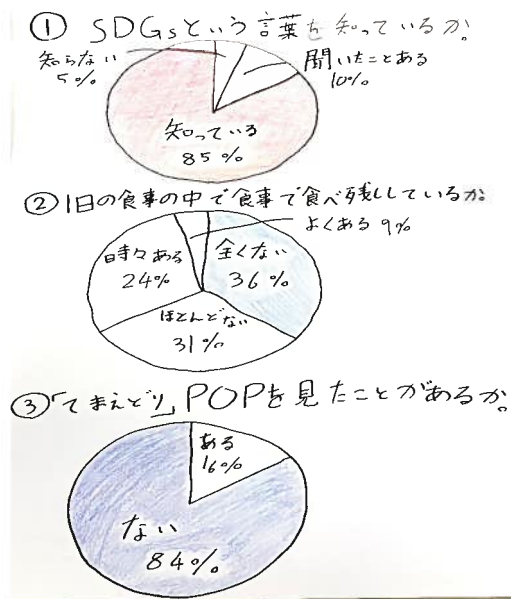 ① SDGsという言葉を知っているか。
知らない
5%
聞いたことある
10%
知っている
85%
②1日の食事の中で食事で食べ残ししているか。
よくある 9%
時々ある
24%
全くない
36%
ほとんどない
31%
③「てまえどり」POPを見たことがあるか。
ある
16%
ない
84%